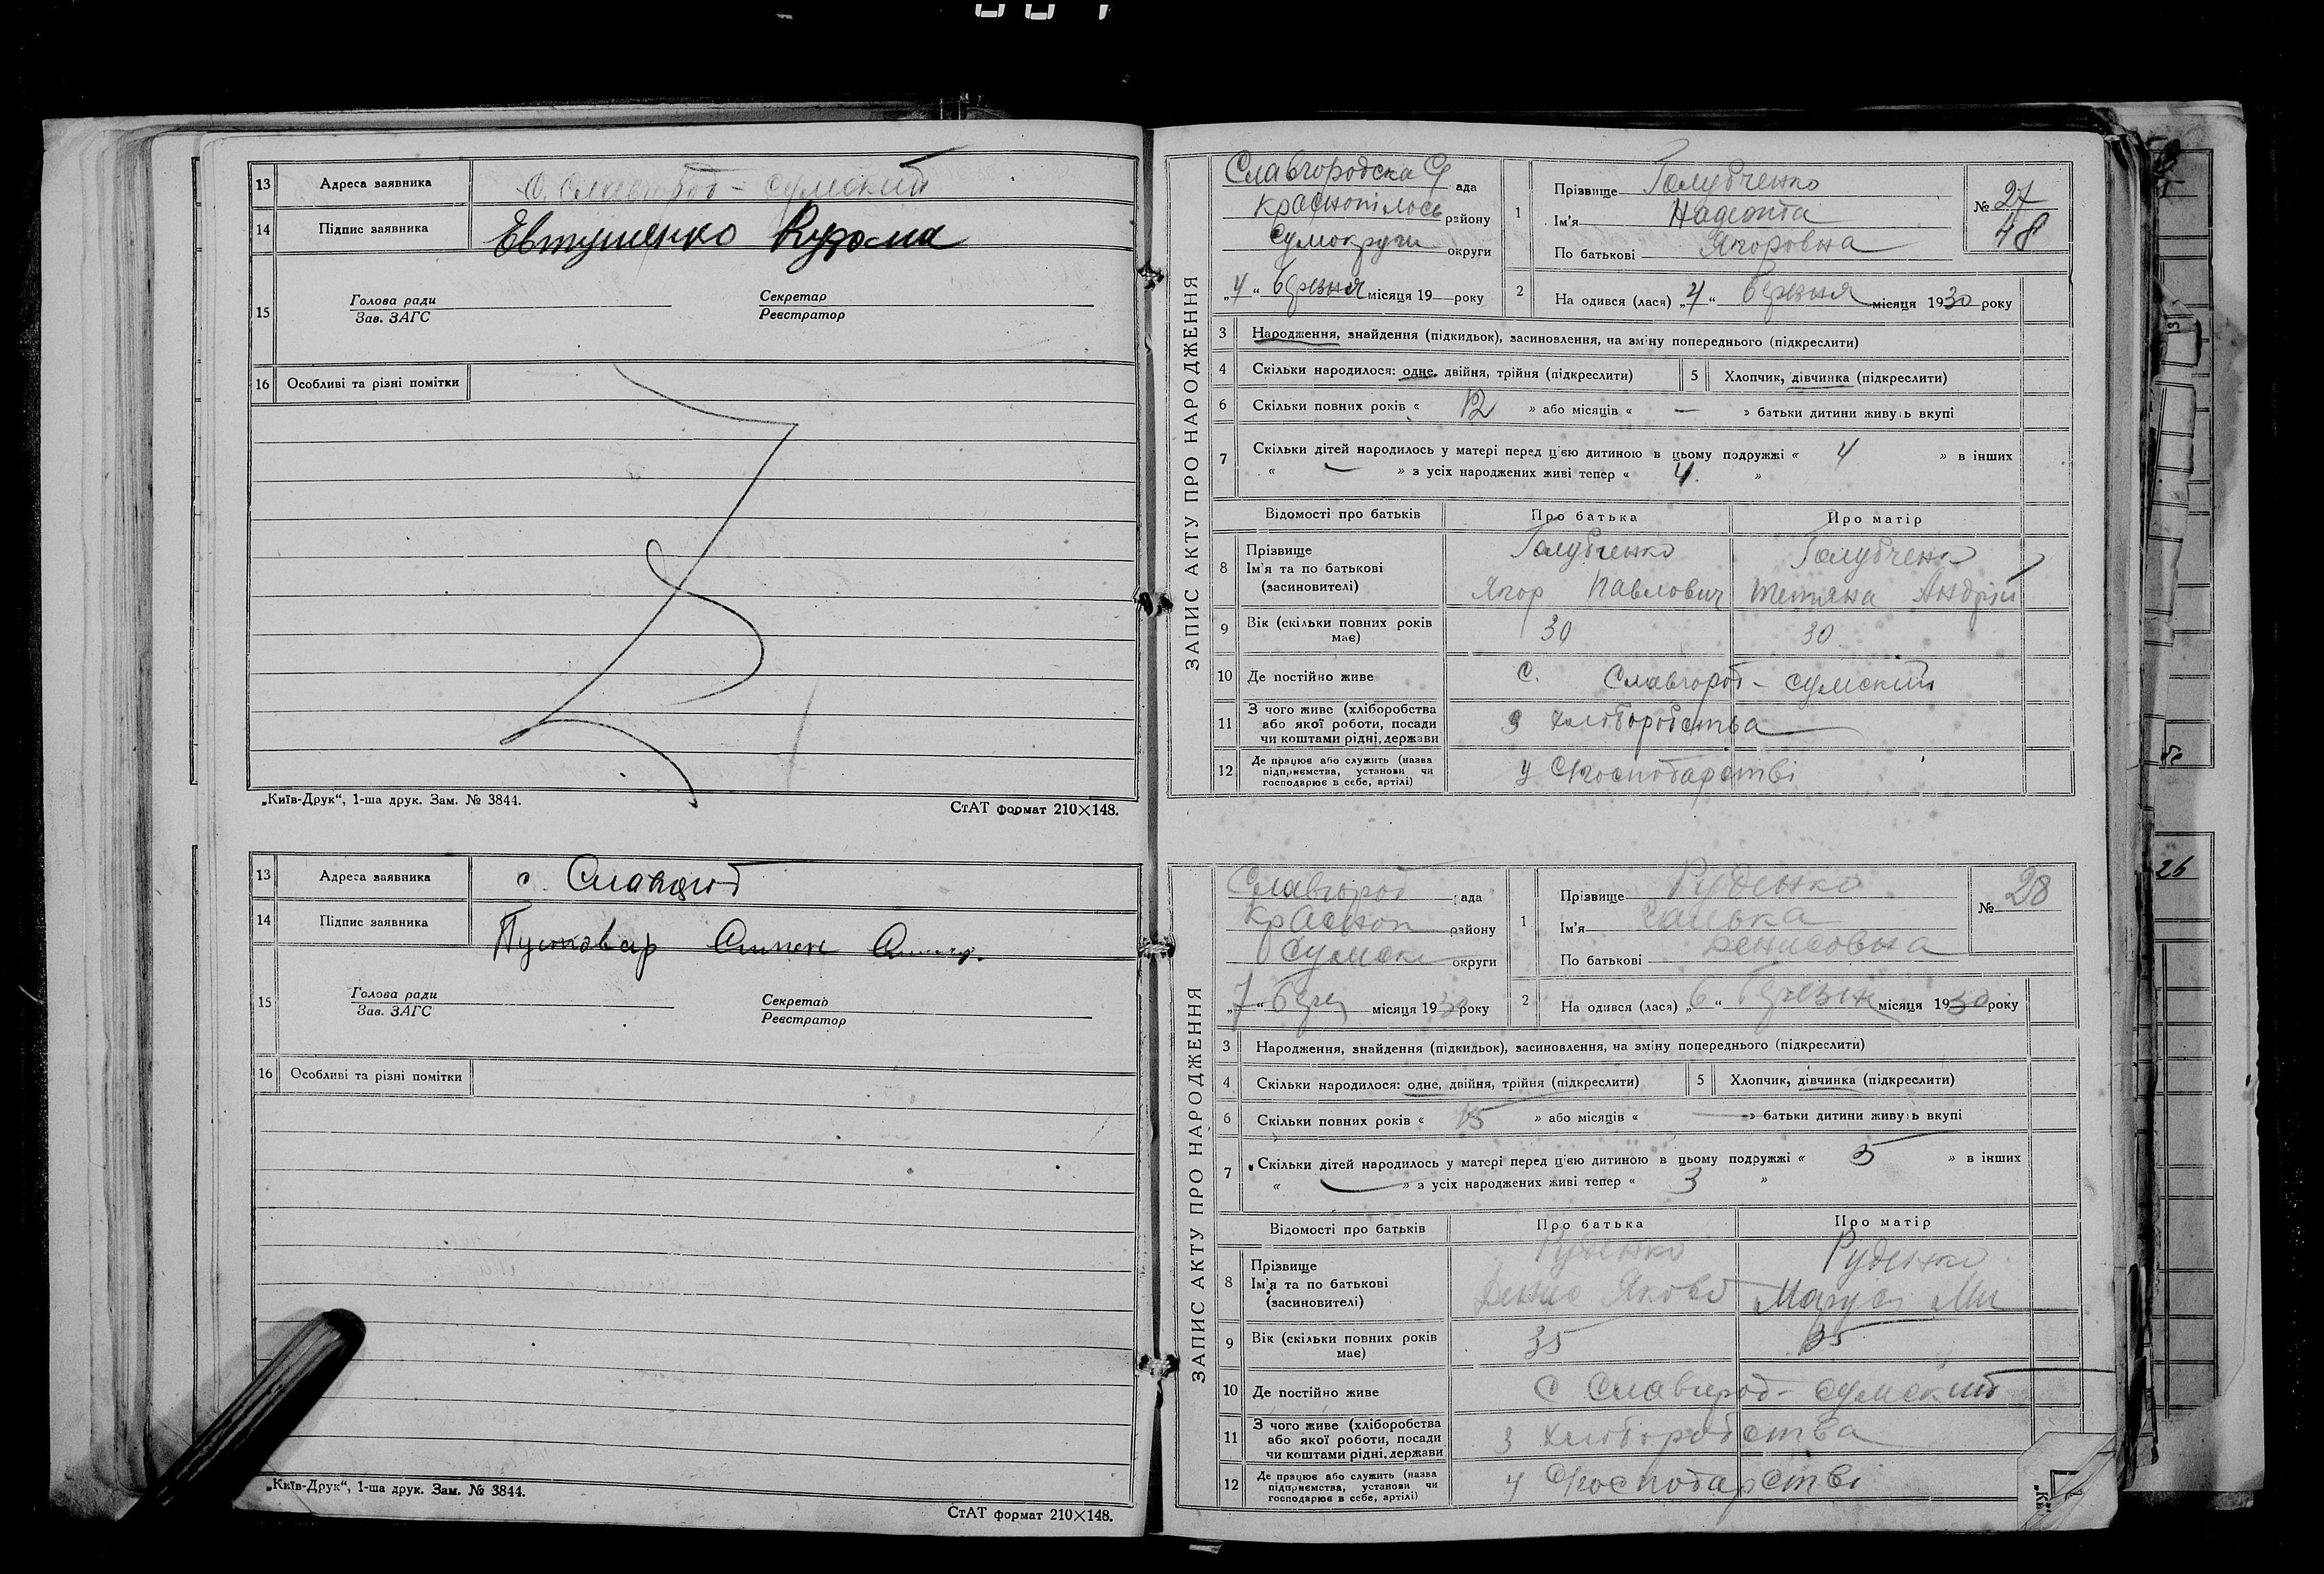 13 Адреса заявника с. Славгород - сумский
14 Підпис заявника Евтушенко Кузьма
15 Голова ради Секретар
Зав. ЗАГС Реєстратор
16 Особливі та різні помітки
„Київ-Друк“, 1-ша друк. Зам. № 3844. СтАТ формат 210×148.
13 Адреса заявника с. Славгород
14 Підпис заявника Пустовар
15 Голова ради Секретар
Зав. ЗАГС Реєстратор
16 Особливі та різні помітки
„Київ-Друк“, 1-ша друк. Зам. № 3844.
СтАТ формат 210×148.
ЗАПИС АКТУ ПРО НАРОДЖЕННЯ
Славгородска ада
Краснопілось району
Сумокруги округи
„4“ березня місяця 19 року
1 Прізвище Голубченко
Ім'я Надежта
По батькові Ягоровна
№ 27
48
2 На одився (лася) „4“ березня місяця 1930 року
3 Народження, знайдення (підкидьок), засиновлення, на зміну попереднього (підкреслити)
4 Скільки народилося: одне, двійня, трійня (підкреслити) 5 Хлопчик, дівчинка (підкреслити)
6 Скільки повних років « 12 » або місяців « — » батьки дитини живуть вкупі
7 Скільки дітей народилось у матері перед цією дитиною в цьому подружжі « 4 » в інших
« — » з усіх народжених живі тепер « 4 »
Відомості про батьків Про батька Про матір
8 Прізвище Голубченко Голубченко
Ім'я та по батькові
(засиновителі) Ягор Павлович Тетяна Андрій
9 Вік (скільки повних років має) 30 30
10 Де постійно живе С. Славгород - сумский
11 З чого живе (хліборобства
або якої роботи, посади
чи коштами рідні, держави
З хліборобства
12 Де працює або служить (назва
підприємства, установи чи
господарює в себе, артілі)
у Господарстві
ЗАПИС АКТУ ПРО НАРОДЖЕННЯ
Славгород ада
Красноп району
Сумске округи
„7“ берез місяця 1930 року
1 Прізвище Руденко
Ім'я Галька
По батькові Денисовна
№ 28
2 На одився (лася) „6“ березня місяця 1930 року
3 Народження, знайдення (підкидьок), засиновлення, на зміну попереднього (підкреслити)
4 Скільки народилося: одне, двійня, трійня (підкреслити) 5 Хлопчик, дівчинка (підкреслити)
6 Скільки повних років « 15 » або місяців « — » батьки дитини живуть вкупі
7 Скільки дітей народилось у матері перед цією дитиною в цьому подружжі « 5 » в інших
« — » з усіх народжених живі тепер « 3 »
Відомості про батьків Про батька Про матір
8 Прізвище Руденко Руденко
Ім'я та по батькові
(засиновителі) Денис Яково Маруся Ми
9 Вік (скільки повних років має) 35 35
10 Де постійно живе С Славгород - сумский
11 З чого живе (хліборобства
або якої роботи, посади
чи коштами рідні, держави
З хліборобства
12 Де працює або служить (назва
підприємства, установи чи
господарює в себе, артілі)
у Господарстві
26